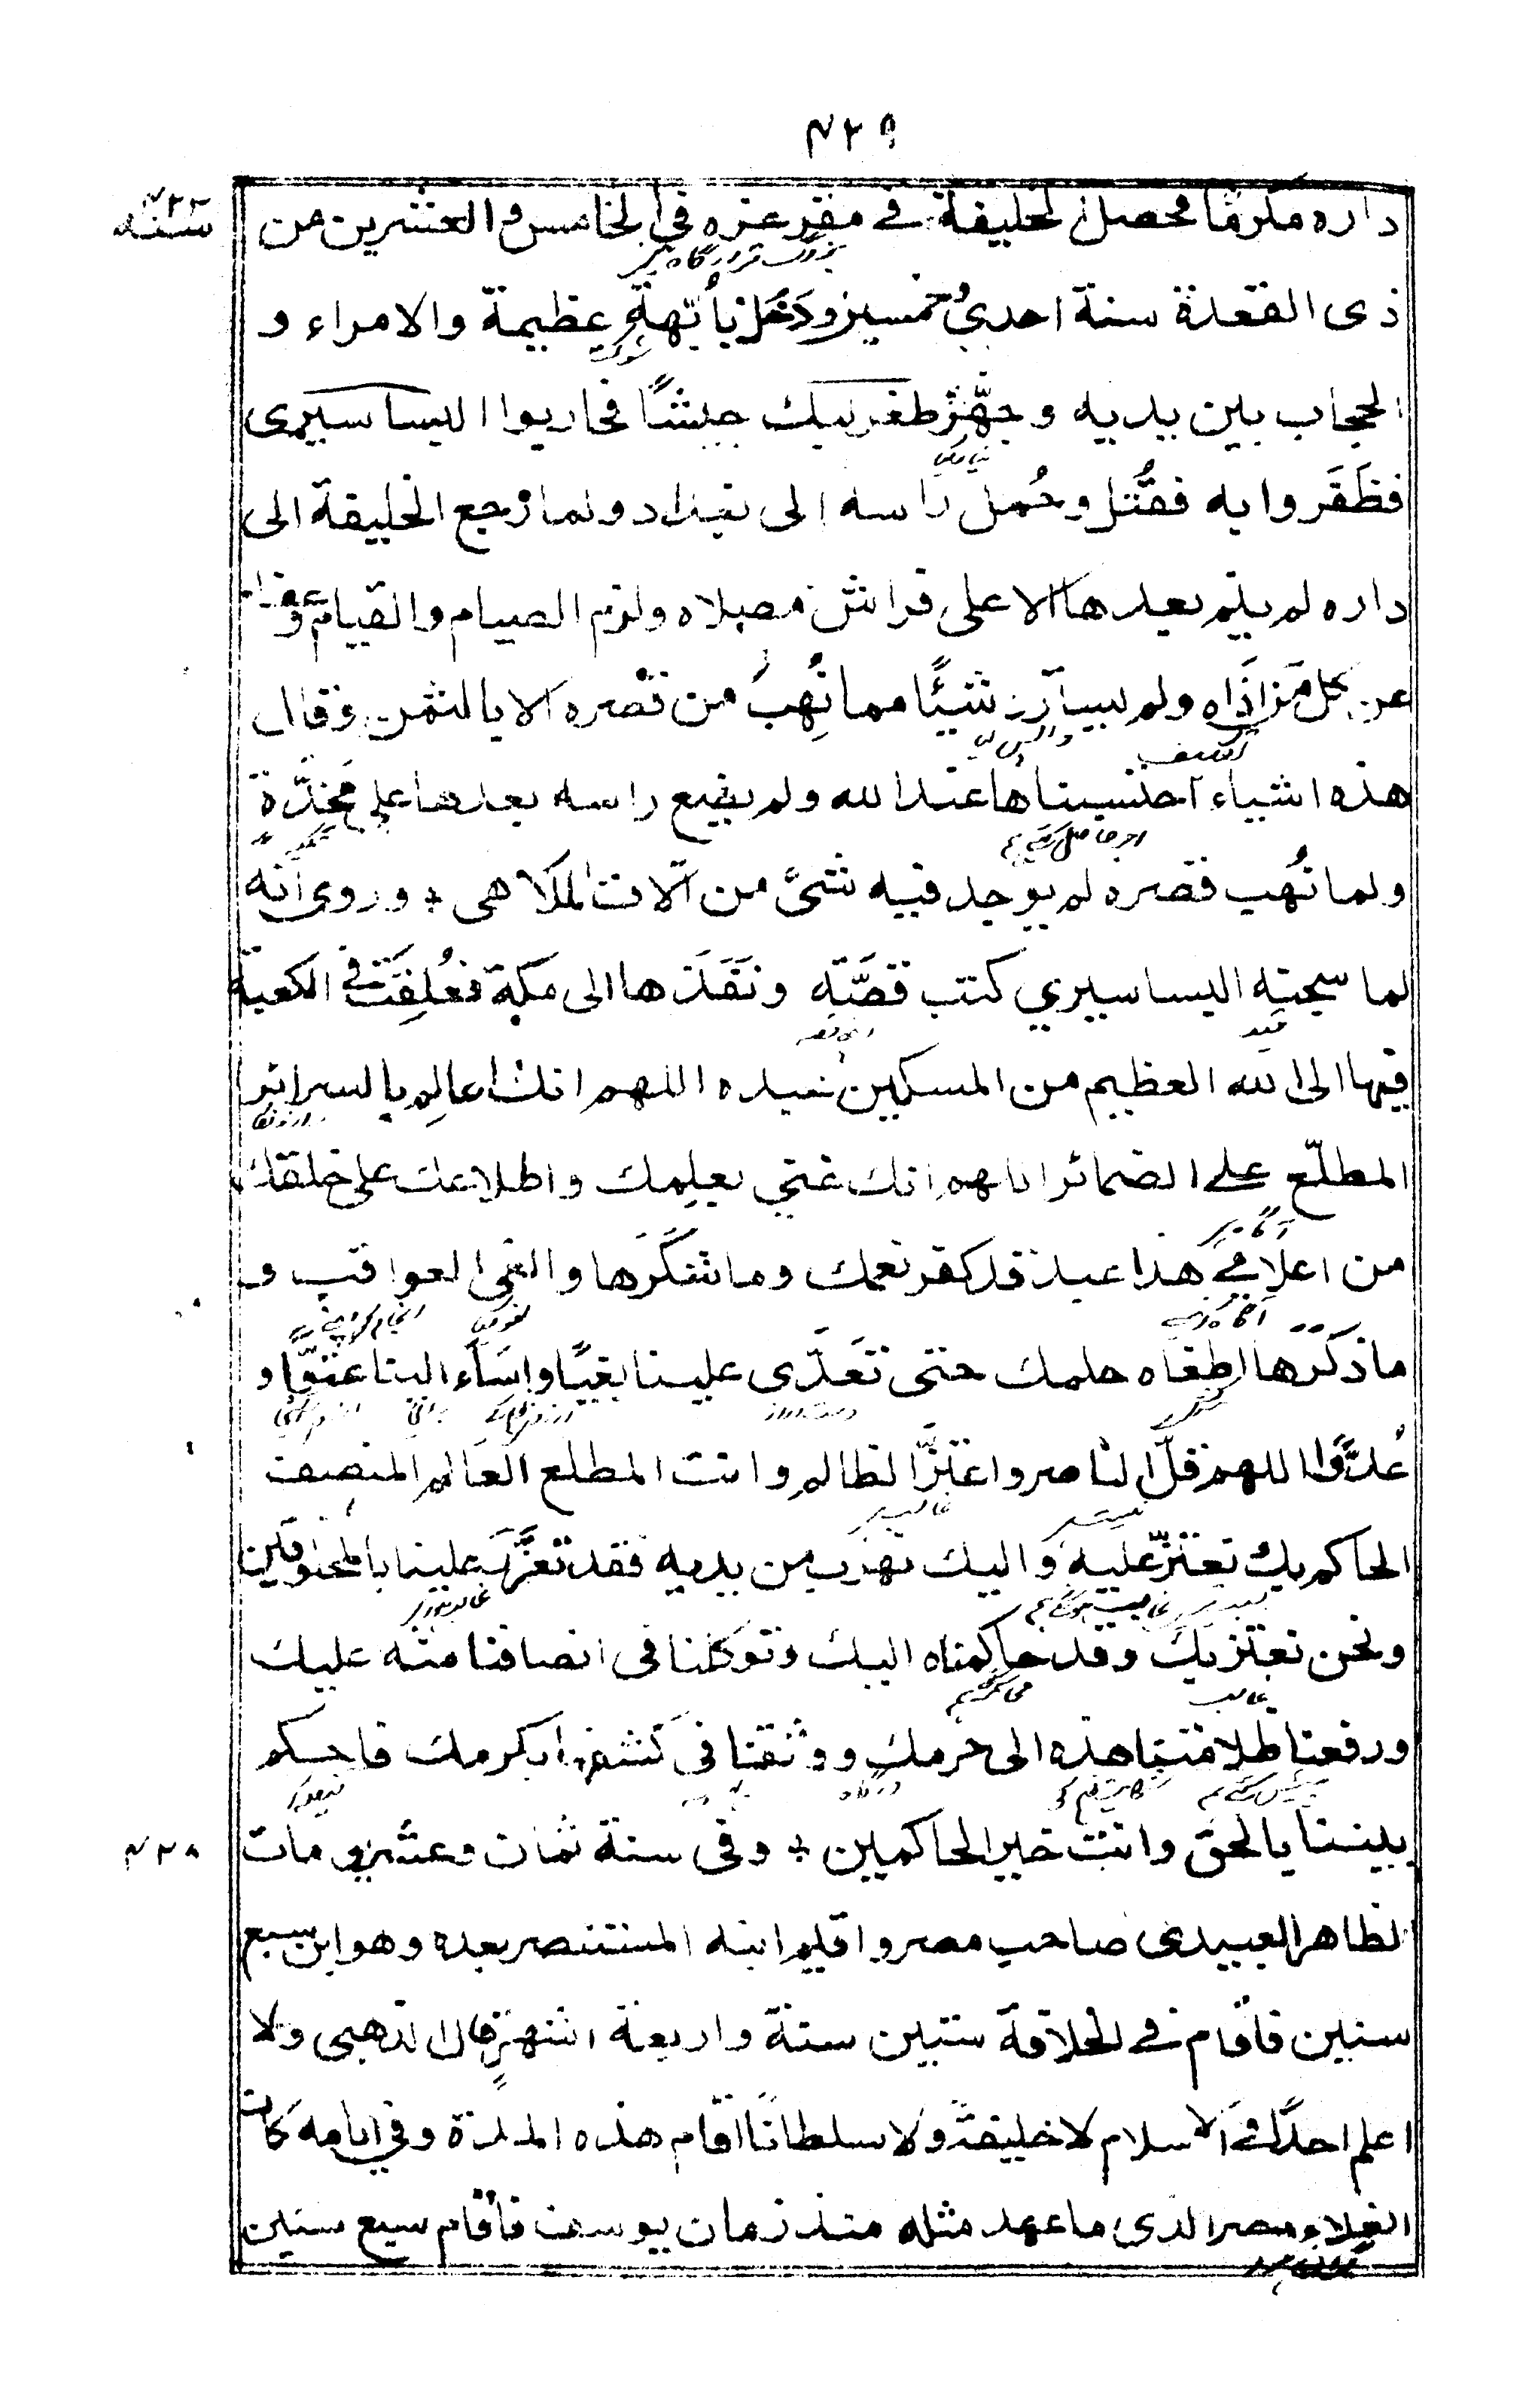 ۴۲۹
داره مكرمًا فحصل الخليفة في مقر عزه في الخامس والعشرين من
سنه
ذى القعدة سنة احدى وخمسين ودخل بأبهة عظيمة والامراء و
الحجاب بين يديه وجهّز طغرلبك جيشًا فحاربوا البساسيرى
فظَفَروا به فقُتل وحُمل راسه الى بغداد ولما رجع الخليفة الى
داره لم ينم بعدها الا على فراش مصلاه ولزم الصيام والقيام وعفا
عن كل من اذاه ولم يسترد شيئًا مما نُهِبَ من قصره الا بالثمن وقال
هذه اشياء احتسبناها عند الله ولم يضع راسه بعدها على مخدّة
ولما نُهب قصره لم يوجد فيه شئ من آلات الملاهى ؞ وروى انه
لما سجنه البساسيري كتب قصَّته ونَفَّذها الى مكة فعُلِّقَت في الكعبة
فيها الى الله العظيم من المسكين عبده اللهم انك العالم بالسرائر
المطلّع على الضمائر اللهم انك غني بعلمك واطلاعك على خلقك
من اعلامي هذا عبد قد كفر نعمك وما شكرها والغى العواقب و
ما ذكَرَها اطغاه حلمك حتى تَعَدّى علينا بغيًا واسَاَء الينا عتوًّا و
عُدوًّا اللهم قلّ الناصر واعتزّ الظالم وانت المطلع العالم المنصف
الحاكم بك نعتزّ عليه واليك نهرب من يديه فقد تعزَّز علينا بالمخلوقين
ونحن نعتز بك وقد حاكمناه اليك وتوكلنا فى انصافنا منه عليك
ورفعنا ظلامتنا هذه الى حرمك ووثقنا فى كشفها بكرمك فاحكم
بيننا بالحق وانت خير الحاكمين ؞ وفى سنة ثمان وعشرين مات
۴۲۸
الظاهر العبيدى صاحب مصر واقيم ابنه المستنصر بعده وهو ابن سبع
سنين فاقام في الخلافة ستين سنة واربعة اشهر قال الذهبى ولا
اعلم احدًا في الاسلام لا خليفةً ولا سلطانًا اقام هذه المدة وفي ايامه كان
الغلاء بمصر الذى ما عهد مثله منذ زمان يوسف فأقام سبع سنين